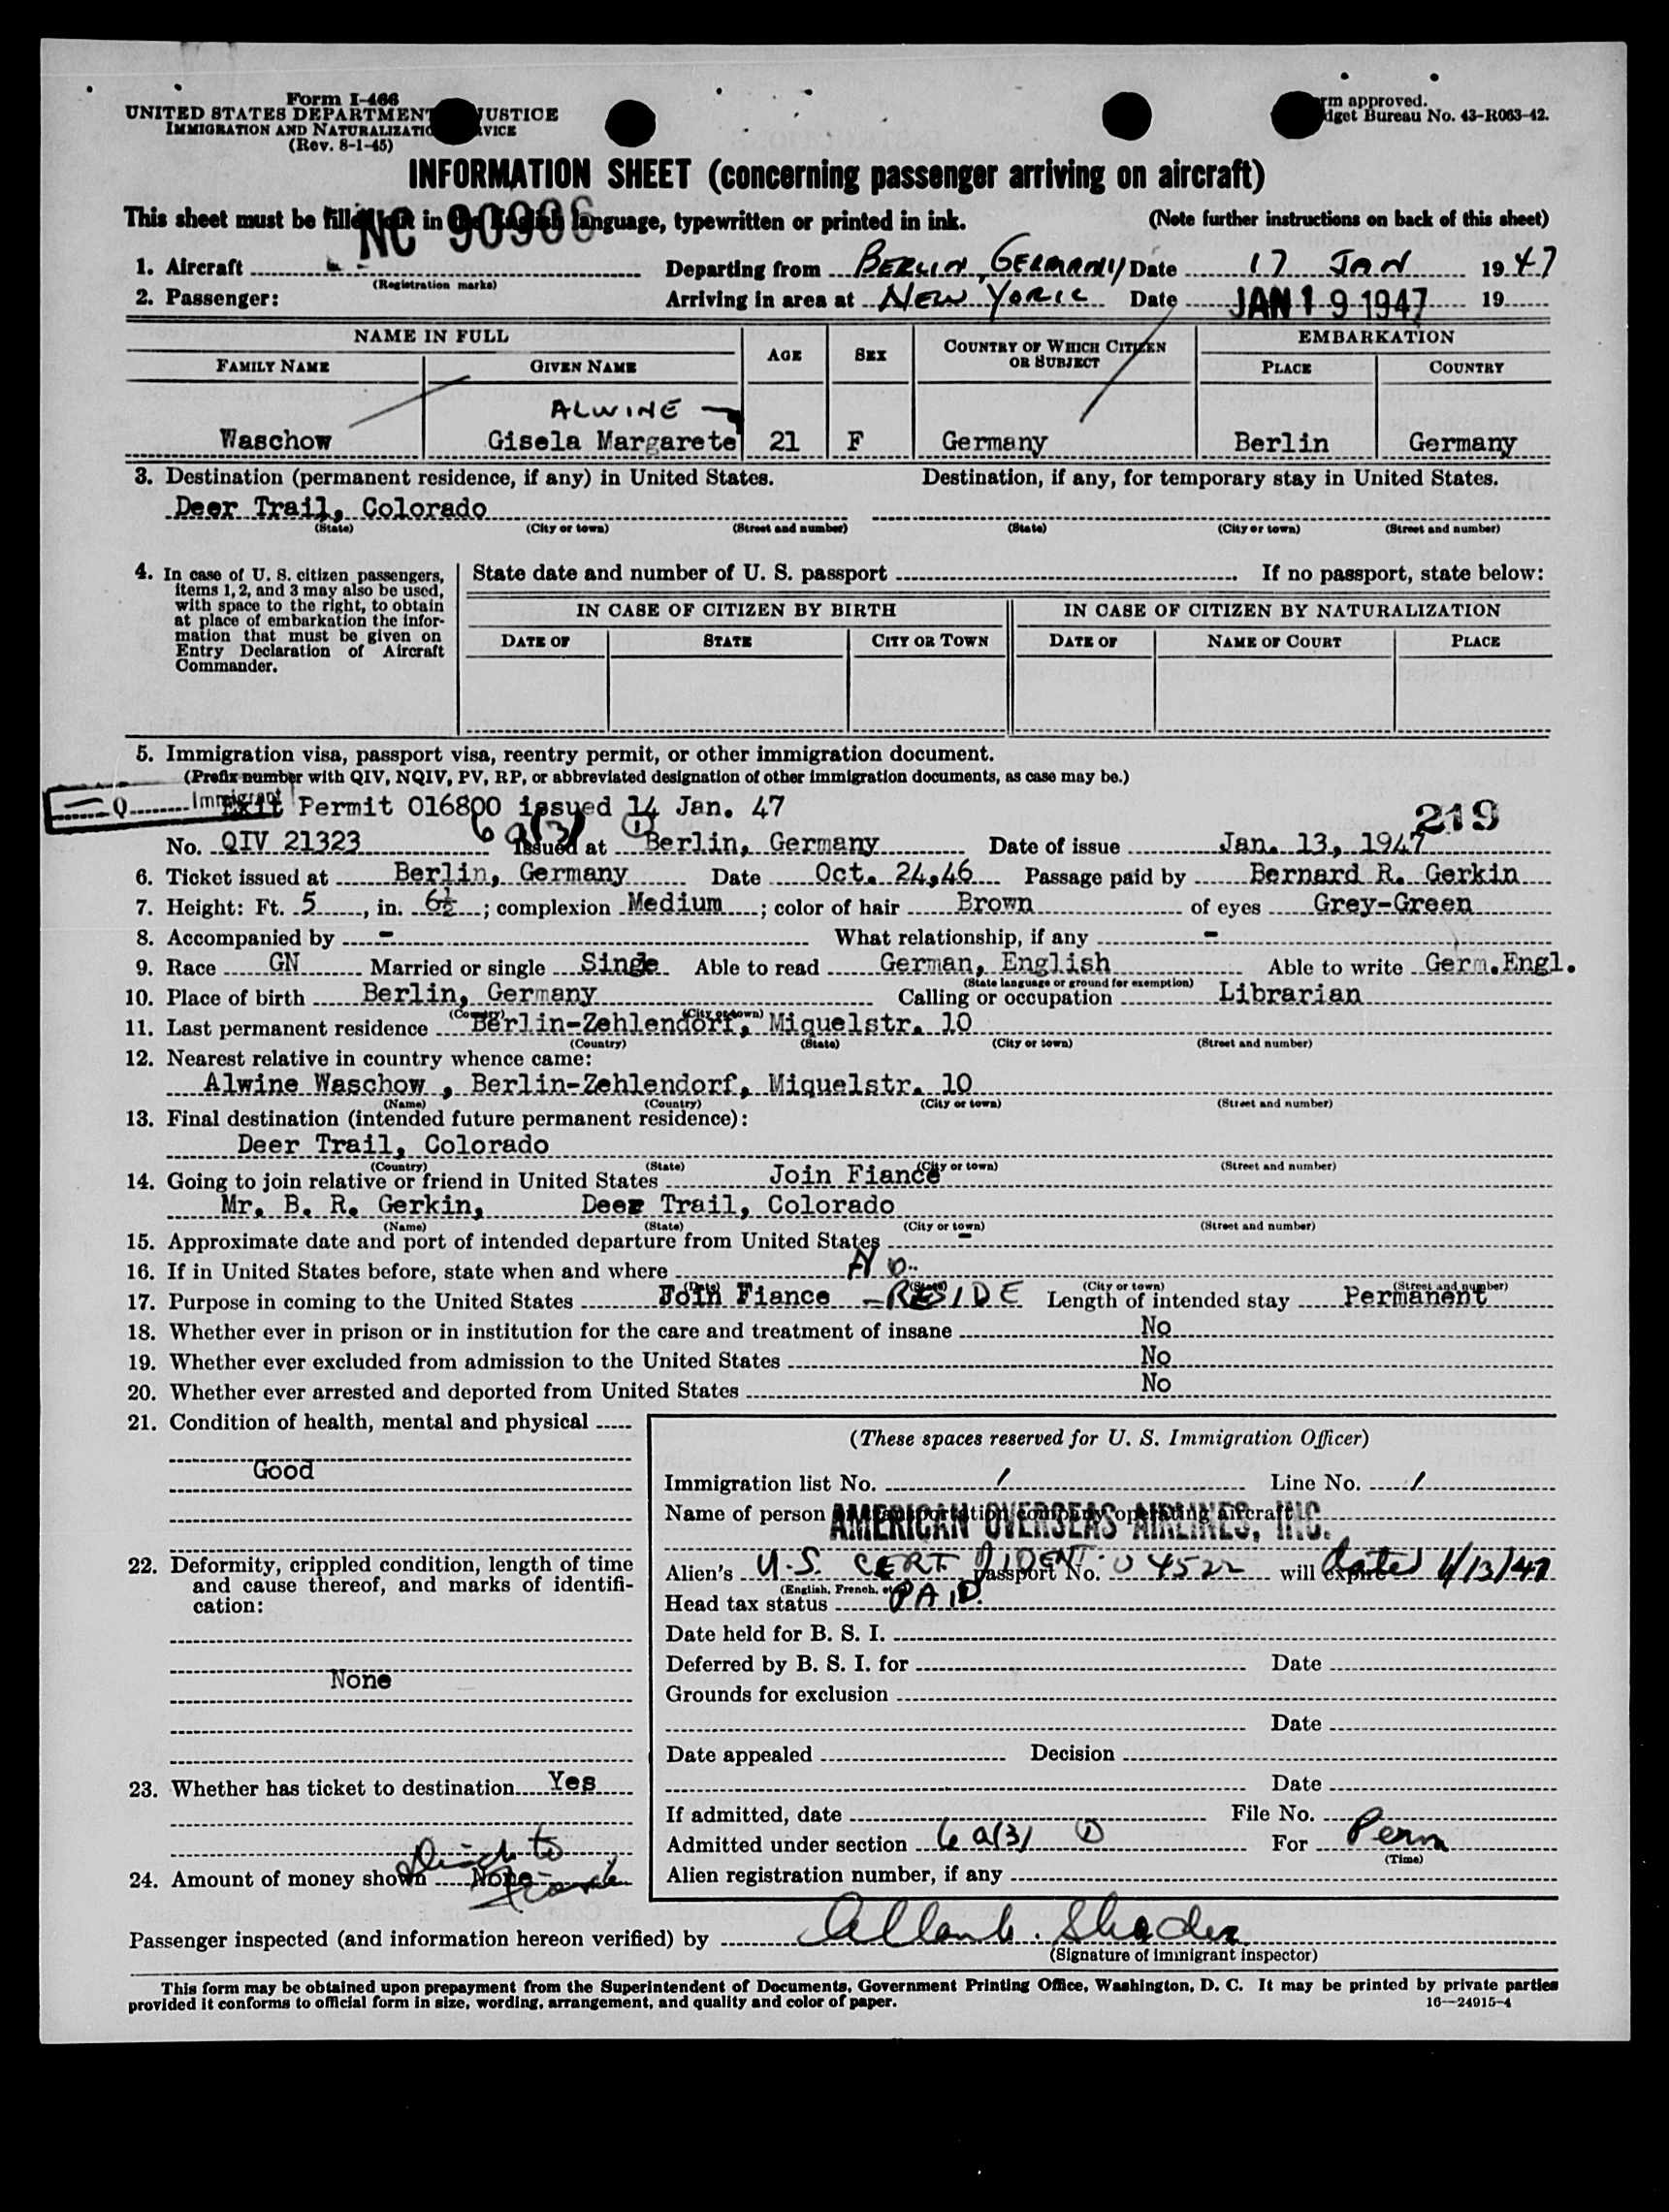 Form I-466
UNITED STATES DEPARTMENT JUSTICE
IMMIGRATION AND NATURALIZATIO VICE
(Rev. 8-1-45)
rm approved.
dget Bureau No. 43-R063-42.
INFORMATION SHEET (concerning passenger arriving on aircraft)
This sheet must be filled out in the English language, typewritten or printed in ink. (Note further instructions on back of this sheet)
NC 90906
1. Aircraft Departing from BERLIN, GERMANY Date 17 JAN 1947
(Registration marks)
2. Passenger: Arriving in area at NEW YORK Date JAN 19 1947 19
NAME IN FULL AGE SEX COUNTRY OF WHICH CITIZEN OR SUBJECT EMBARKATION
FAMILY NAME GIVEN NAME PLACE COUNTRY
ALWINE
Waschow Gisela Margarete 21 F Germany Berlin Germany
3. Destination (permanent residence, if any) in United States. Destination, if any, for temporary stay in United States.
Deer Trail, Colorado
(State) (City or town) (Street and number) (State) (City or town) (Street and number)
4. In case of U. S. citizen passengers,
items 1, 2, and 3 may also be used,
with space to the right, to obtain
at place of embarkation the infor-
mation that must be given on
Entry Declaration of Aircraft
Commander.
State date and number of U. S. passport . If no passport, state below:
IN CASE OF CITIZEN BY BIRTH IN CASE OF CITIZEN BY NATURALIZATION
DATE OF STATE CITY OR TOWN DATE OF NAME OF COURT PLACE
5. Immigration visa, passport visa, reentry permit, or other immigration document.
(Prefix number with QIV, NQIV, PV, RP, or abbreviated designation of other immigration documents, as case may be.)
Q Immigrant
Exit Permit 016800 issued 14 Jan. 47
219
6 a(3) 1
No. QIV 21323 Issued at Berlin, Germany Date of issue Jan. 13, 1947
6. Ticket issued at Berlin, Germany Date Oct. 24,46 Passage paid by Bernard R. Gerkin
7. Height: Ft. 5, in. 6½; complexion Medium; color of hair Brown of eyes Grey-Green
8. Accompanied by - What relationship, if any -
9. Race GN Married or single Singe Able to read German, English Able to write Germ.Engl.
(State language or ground for exemption)
10. Place of birth Berlin, Germany Calling or occupation Librarian
(Country) (City or town)
11. Last permanent residence Berlin-Zehlendorf, Miquelstr. 10
(Country) (State) (City or town) (Street and number)
12. Nearest relative in country whence came:
Alwine Waschow , Berlin-Zehlendorf, Miquelstr. 10
(Name) (Country) (City or town) (Street and number)
13. Final destination (intended future permanent residence):
Deer Trail, Colorado
(Country) (State) (City or town) (Street and number)
14. Going to join relative or friend in United States Join Fiance
Mr. B. R. Gerkin, Deer Trail, Colorado
(Name) (State) (City or town) (Street and number)
15. Approximate date and port of intended departure from United States -
16. If in United States before, state when and where No
(Date) (State) (City or town) (Street and number)
17. Purpose in coming to the United States Join Fiance - RESIDE Length of intended stay Permanent
18. Whether ever in prison or in institution for the care and treatment of insane No
19. Whether ever excluded from admission to the United States No
20. Whether ever arrested and deported from United States No
21. Condition of health, mental and physical
Good
22. Deformity, crippled condition, length of time
and cause thereof, and marks of identifi-
cation:
None
23. Whether has ticket to destination Yes
24. Amount of money shown None
(These spaces reserved for U. S. Immigration Officer)
Immigration list No. 1 Line No. 1
Name of person or transportation company operating aircraft
AMERICAN OVERSEAS AIRLINES, INC.
Alien's U.S. CERT IDENT. passport No. 04522 will expire dated 1/13/47
(English, French, etc.)
Head tax status PAID.
Date held for B. S. I.
Deferred by B. S. I. for Date
Grounds for exclusion
Date
Date appealed Decision
Date
If admitted, date File No.
Admitted under section 6 a(3) 1 For Perm
(Time)
Alien registration number, if any
Passenger inspected (and information hereon verified) by
(Signature of immigrant inspector)
This form may be obtained upon prepayment from the Superintendent of Documents, Government Printing Office, Washington, D. C. It may be printed by private parties
provided it conforms to official form in size, wording, arrangement, and quality and color of paper. 16—24915-4